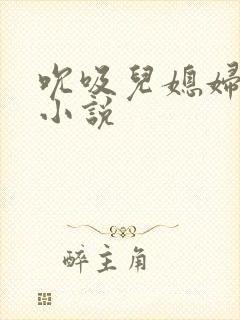 吹吸兒媳婦
小說
醉主角